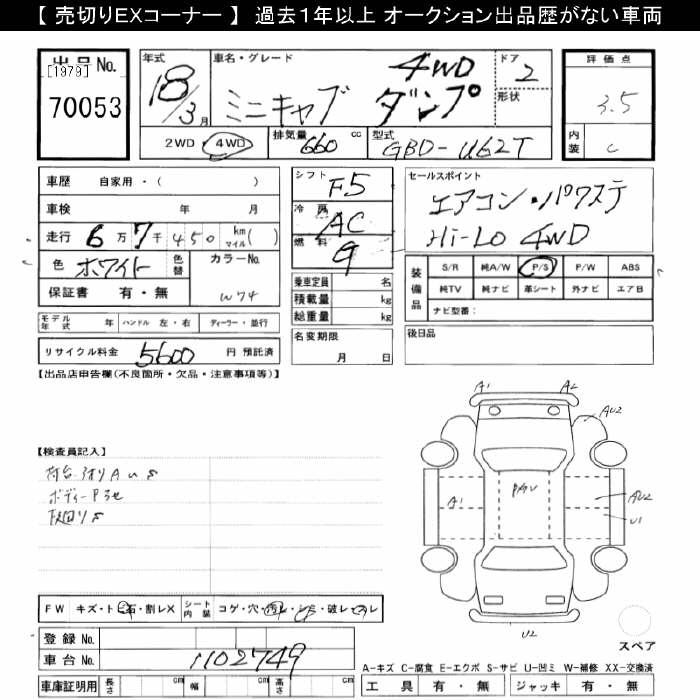 【 売切りEXコーナー 】 過去１年以上 オークション出品歴がない車両
出品No.
[1979]
70053
年式
18/3月
車名・グレード
4WD
ミニキャブ ダンプ
ドア
2
形状
評価点
3.5
内装
C
2WD・4WD
排気量
660 cc
型式
GBD-U62T
車歴 自家用・( )
車検 年 月
走行 6万7千450 kmマイル( )
色 ホワイト 色替
カラーNo.
W74
保証書 有・無
シフト
F5
冷房
AC
燃料
乗車定員 名
積載量 kg
総重量 kg
名変期限
月 日
セールスポイント
エアコン・パワステ
Hi-Lo 4WD
装備品
S/R 純A/W P/S P/W ABS
純TV 純ナビ 革シート 外ナビ エアB
ナビ型番：
後日品
モデル年式 年 ハンドル 左・右 ディーラー・並行
リサイクル料金 5600 円 預託済
【出品店申告欄(不良箇所・欠品・注意事項等)】
【検査員記入】
荷台アオリAUS
ボディーPうせ
下回りS
A1 A2
AU2
A1
PAU
AU2
U1
U2
FW キズ・ト石・割レX シート内装 コゲ・穴・汚レ・シミ・破レ・スレ
登録No.
車台No. 1102749
車庫証明用 長さ cm 幅 cm 高さ cm
スペア
A-キズ C-腐食 E-エクボ S-サビ U-凹ミ W-補修 XX-交換済
工具 有・無 ジャッキ 有・無